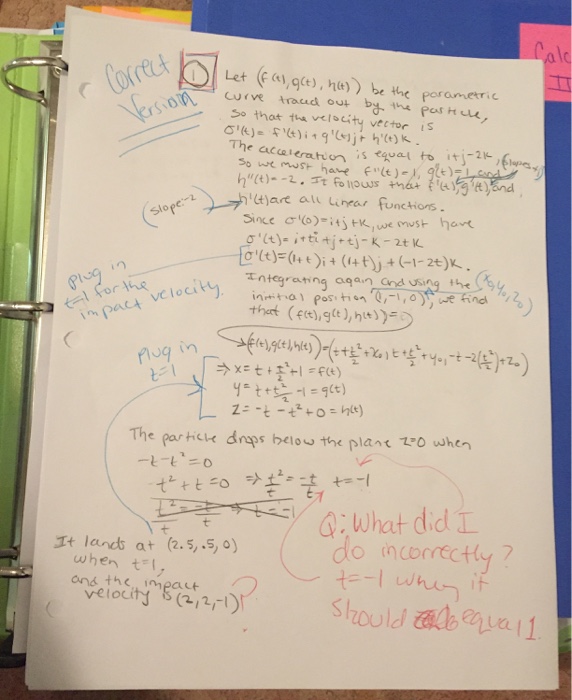 Calc
II
Correct
Version
1
Let (f(t), g(t), h(t)) be the parametric
curve traced out by the particle,
so that the velocity vector is
σ'(t) = f'(t)i + g'(t)j + h'(t)k.
The acceleration is equal to i+j-2k,
So we must have f"(t)=1, g(t)=1, and
h"(t)=-2. It follows that f'(t), g'(t), and
(slope -2) → h'(t) are all linear functions.
Since σ'(0)=i+j+k, we must have
σ'(t)=i+ti+j+tj-k-2tk
σ'(t)=(1+t)i+(1+t)j+(-1-2t)k.
plug in
t=1 for the
impact velocity.
Integrating again and using the (x₀,y₀,z₀)
initial position (1,-1,0), we find
that (f(t),g(t),h(t))=
→(f(t),g(t),h(t))=(t+t²/2+x₀, t+t²/2+y₀, -t-2(t²/2)+z₀)
plug in
t=1
⇒ x=t+t²/2+1=f(t)
y=t+t²/2-1=g(t)
z=-t-t²+0=h(t)
The particle drops below the plane z=0 when
-t-t²=0
-t²+t=0 ⇒ t²/t=-t/t t=-1
t²/t=-t/t ⇒ t=-1
It lands at (2.5,.5,0)
when t=1,
and the impact
velocity is (2,2,-1)?
Q: What did I
do incorrectly?
t=-1 when it
should equal 1.